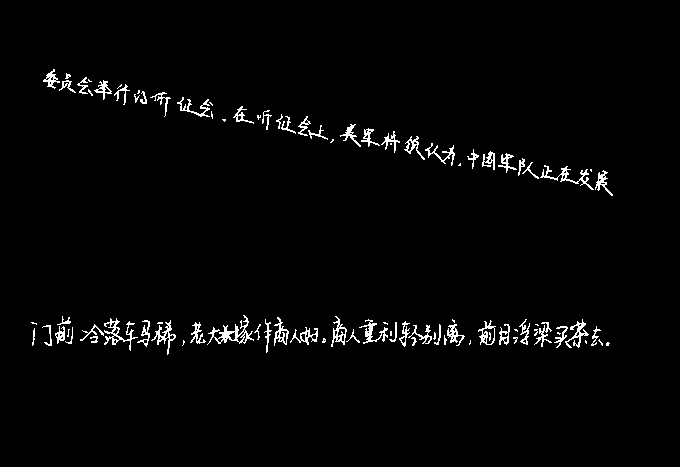 委员会举行的听证会。在听证会上,美军将领认为,中国军队正在发展
门前冷落车马稀,老大嫁作商人妇。商人重利轻别离,前月浮梁买茶去。